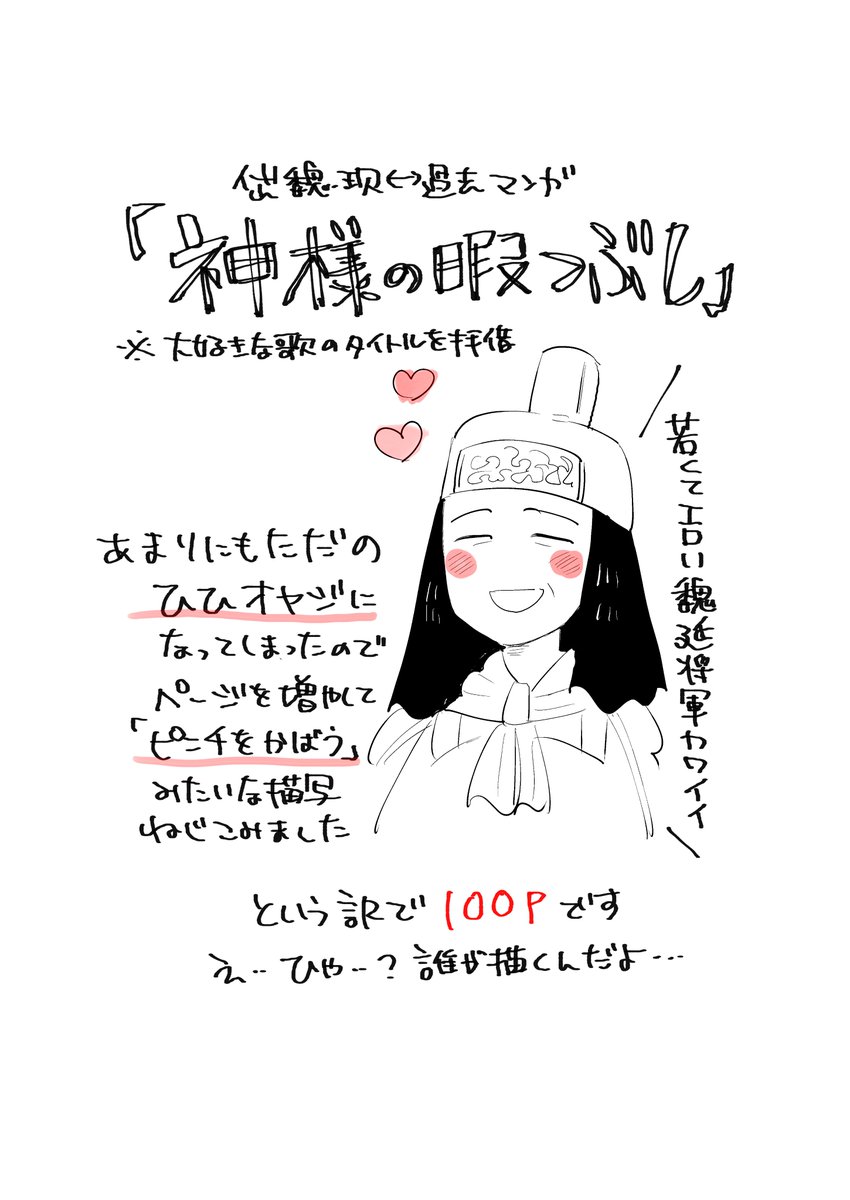 魏‥現⇔過去マンガ
「神様の暇つぶし」
※大好きな歌のタイトルを拝借
若くてエロい魏延将軍カワイイ
あまりにもただの
ひひオヤジに
なってしまったので
ページを増やして
「ピンチをかばう」
みたいな描写
ねじこみました
という訳で100Pです
え‥ひゃ‥?誰が描くんだよ…